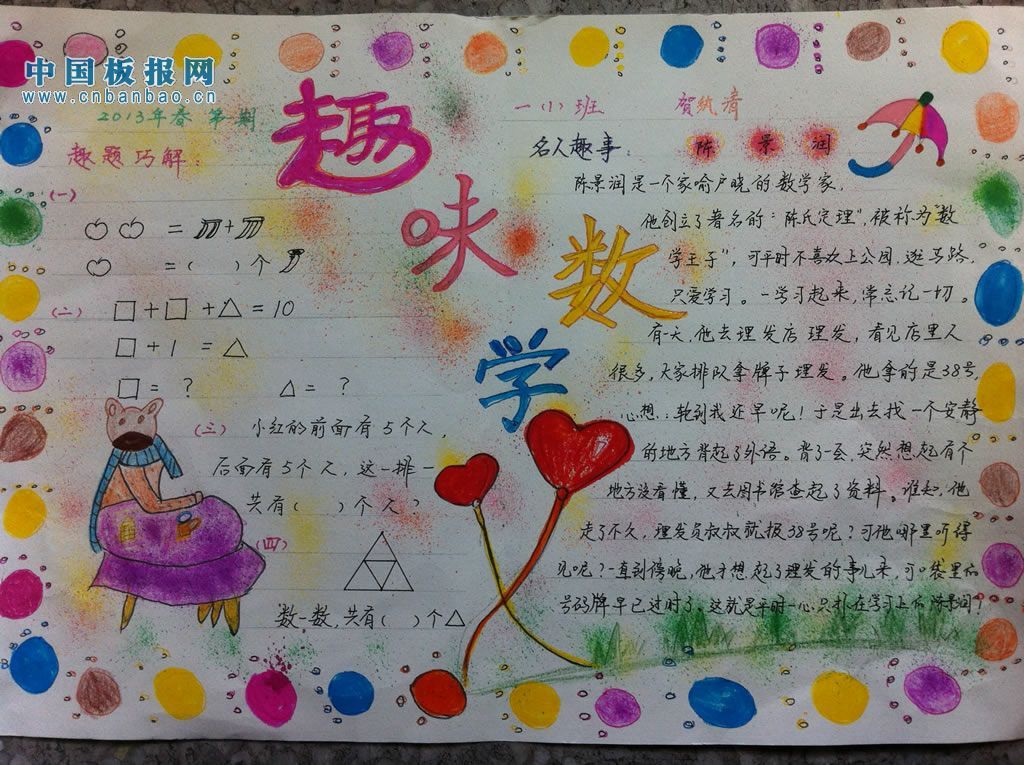 中国板报网
www.cnbanbao.cn
2013年春 第一期
趣味数学
一(1)班
趣题巧解：
(一)
= + 
=( )个
(二)
□+□+△=10
□+1 =△
□= ? △= ?
(三) 小红的前面有5个人，
后面有5个人，这一排一
共有( )个人？
(四)
数一数，共有( )个△
名人趣事： 陈景润
陈景润是一个家喻户晓的数学家，
他创立了著名的“陈氏定理”，被称为“数
学王子”，可平时不喜欢上公园，逛马路，
只爱学习。一学习起来，常忘记一切。
有天，他去理发店理发，看见店里人
很多，大家排队拿牌子理发。他拿的是38号，
心想：轮到我还早呢！于是出去找一个安静
的地方背起了外语。背了一会，突然想起有个
地方没看懂，又去图书馆查起了资料。谁知，他
走了不久，理发员叔叔就报38号呢？可他哪里听得
见呢？一直到傍晚，他才想起了理发的事儿来，可口袋里的
号码牌早已过时了。这就是平时一心只扑在学习上的陈景润